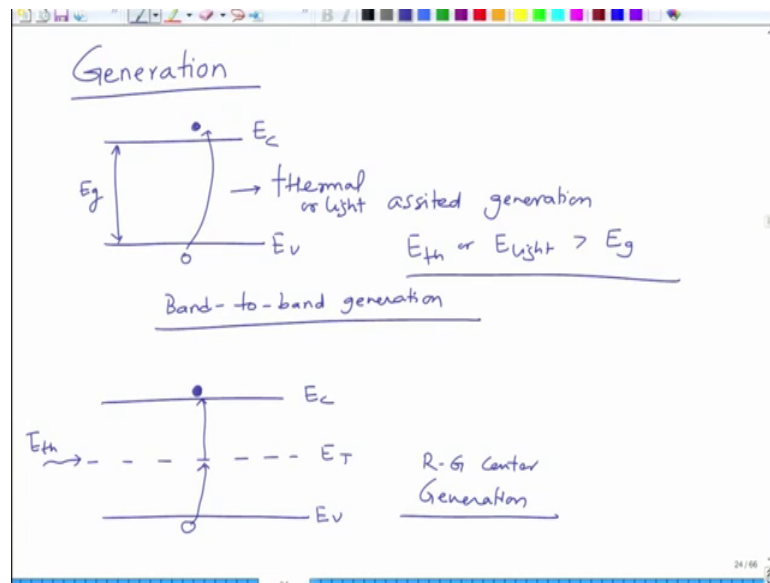 Generation
Ec
Eg
→ thermal
or light assited generation
Ev
Eth or Elight > Eg
Band-to-band generation
Ec
Eth
ET
R-G Center
Generation
Ev
24/66